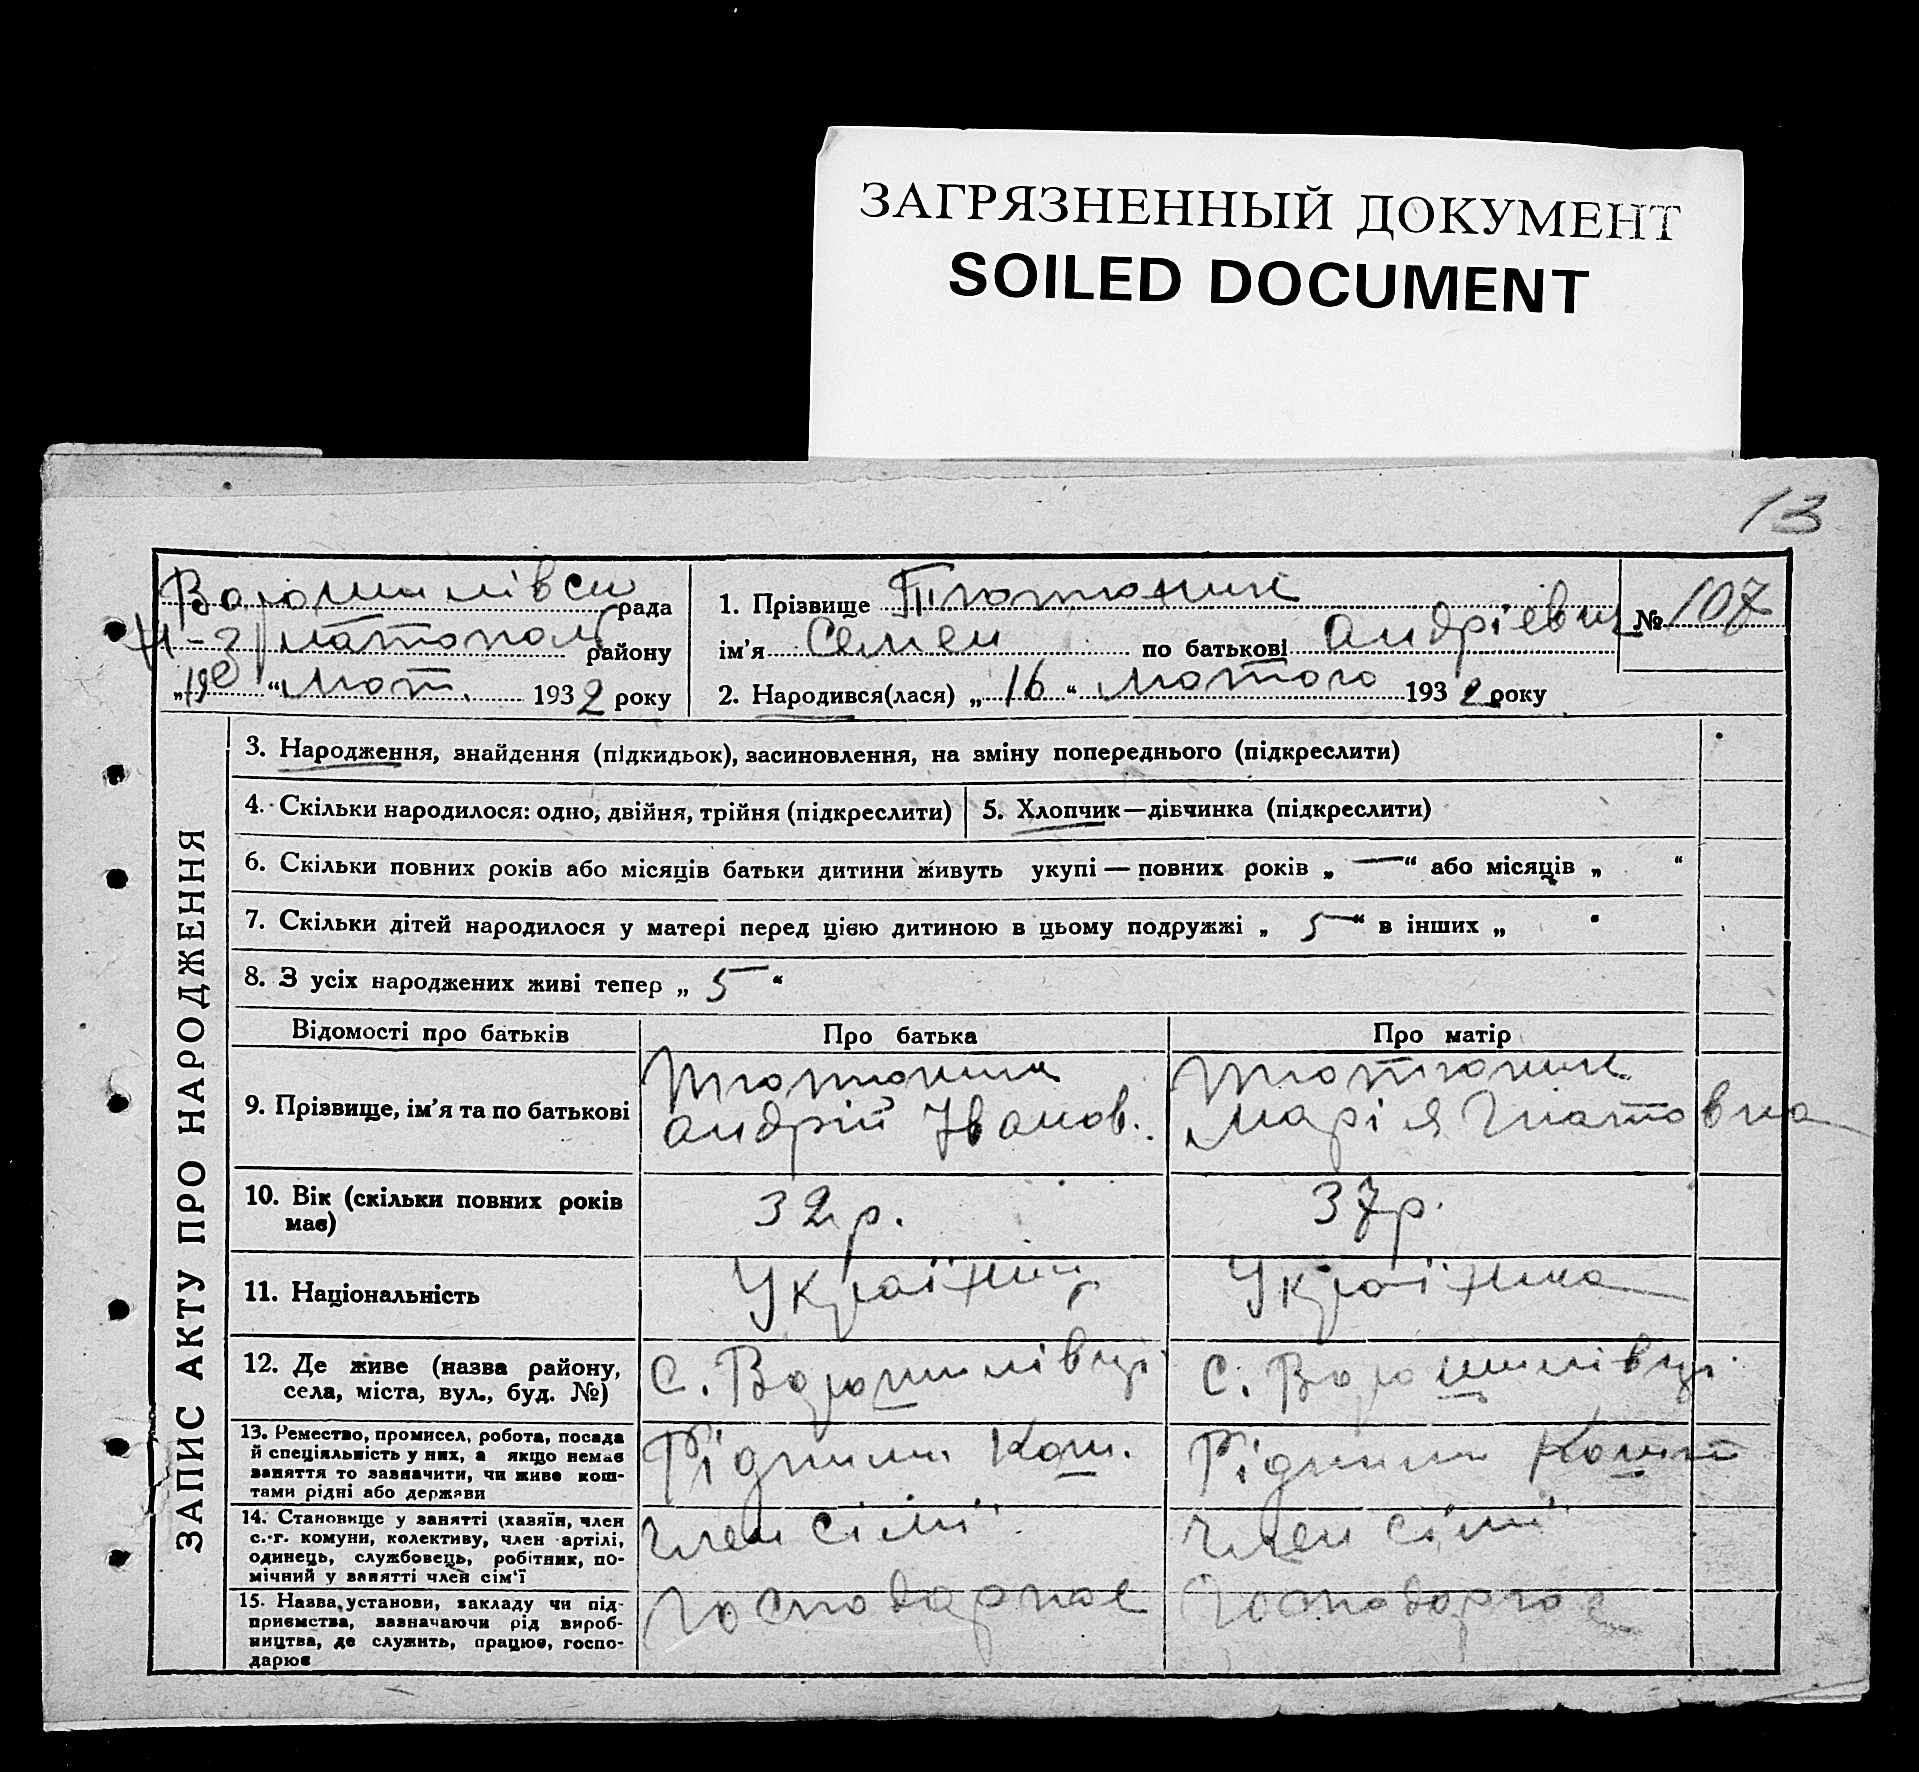 ЗАГРЯЗНЕННЫЙ ДОКУМЕНТ
SOILED DOCUMENT
13
Ворошилівськ рада
района району
„19“ Лют. 1932 року
1. Прізвище Тютюник
ім’я Семен по батькові Андрієвич
2. Народився(лася) „16“ Лютого 1932 року
№ 107
ЗАПИС АКТУ ПРО НАРОДЖЕННЯ
3. Народження, знайдення (підкидьок), засиновлення, на зміну попереднього (підкреслити)
4. Скільки народилося: одно, двійня, трійня (підкреслити)
5. Хлопчик—дівчинка (підкреслити)
6. Скільки повних років або місяців батьки дитини живуть укупі — повних років „ — “ або місяців „ “
7. Скільки дітей народилося у матері перед цією дитиною в цьому подружжі „ 5 “ в інших „ “
8. З усіх народжених живі тепер „ 5 “
Відомості про батьків Про батька Про матір
9. Прізвище, ім’я та по батькові
Тютюник
Андрій Іванов.
Тютюник
Марія Гнатовна
10. Вік (скільки повних років має)
32 р.
37 р.
11. Національність
Українць
Українка
12. Де живе (назва району, села, міста, вул., буд. №)
с. Ворошилівці
с. Ворошилівці
13. Ремество, промисел, робота, посада й спеціяльність у них, а якщо немає заняття то зазначити, чи живе коштами рідні або держави
Рідними Кош.
Рідними Кошт
14. Становище у занятті (хазяїн, член с.-г. комуни, колективу, член артілі, одинець, службовець, робітник, помічний у занятті член сім’ї
член сімї
член сімї
15. Назва установи, закладу чи підприємства, зазначаючи рід виробництва, де служить, працює, господарює